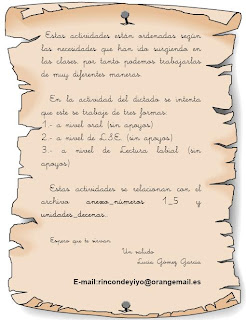 Estas actividades están ordenadas según
las necesidades que han ido surgiendo en
las clases, por tanto podemos trabajarlas
de muy diferentes maneras.
En la actividad del dictado se intenta
que este se trabaje de tres formas:
1.- a nivel oral (sin apoyos)
2.- a nivel de L.S.E. (sin apoyos)
3.- a nivel de Lectura labial (sin
apoyos)
Estas actividades se relacionan con el
archivo anexo_números 1_5 y
unidades_decenas.
Espero que te sirvan
Un saludo
Lucía Gómez García
E-mail:rincondeyiyo@orangemail.es